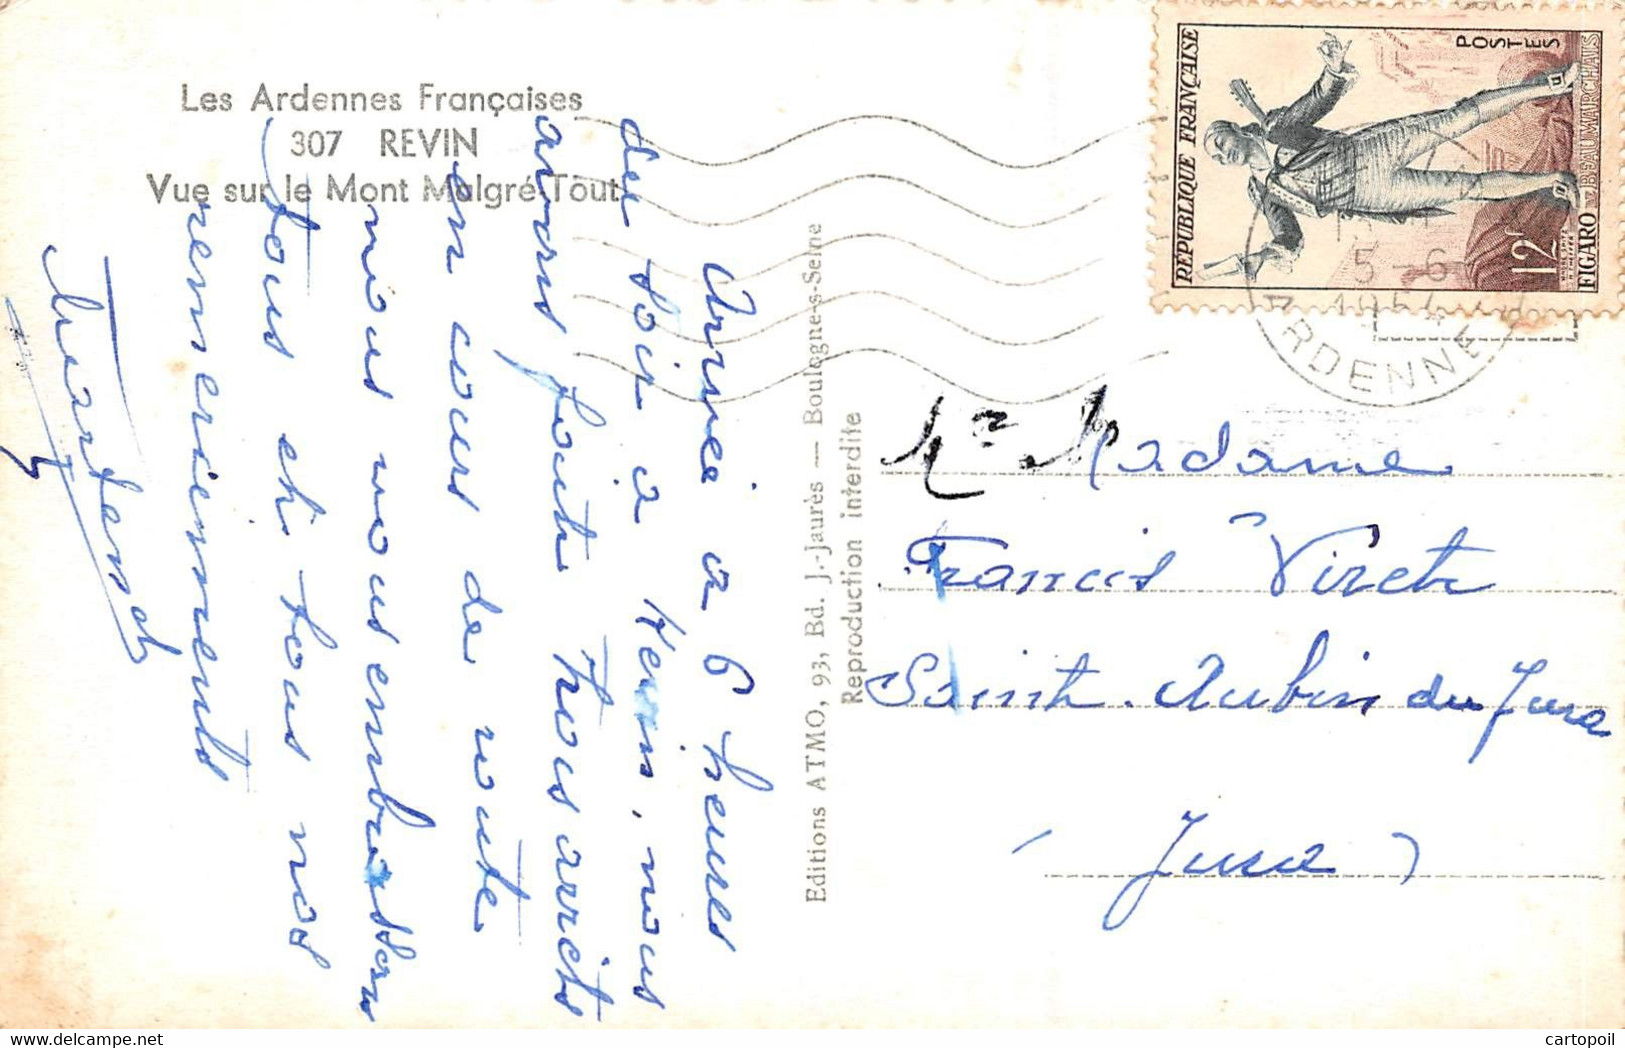 Les Ardennes Françaises
307 REVIN
Vue sur le Mont Malgré-Tout
Arrivée à 6 heures
du soir à Revin, nous
avons faite trois arrêts
en cours de route
nous vous embrassons
tous et tous nos
remerciements
Editions ATMO, 93, Bd. J.-Jaurès — Boulogne-s-Seine
Reproduction interdite
REPUBLIQUE FRANÇAISE
POSTES
12F
FIGARO DE BEAUMARCHAIS
5-6
1954
ARDENNES
Madame
Francis Viret
Saint. Aubin du Jura
(Jura)
cartopoil